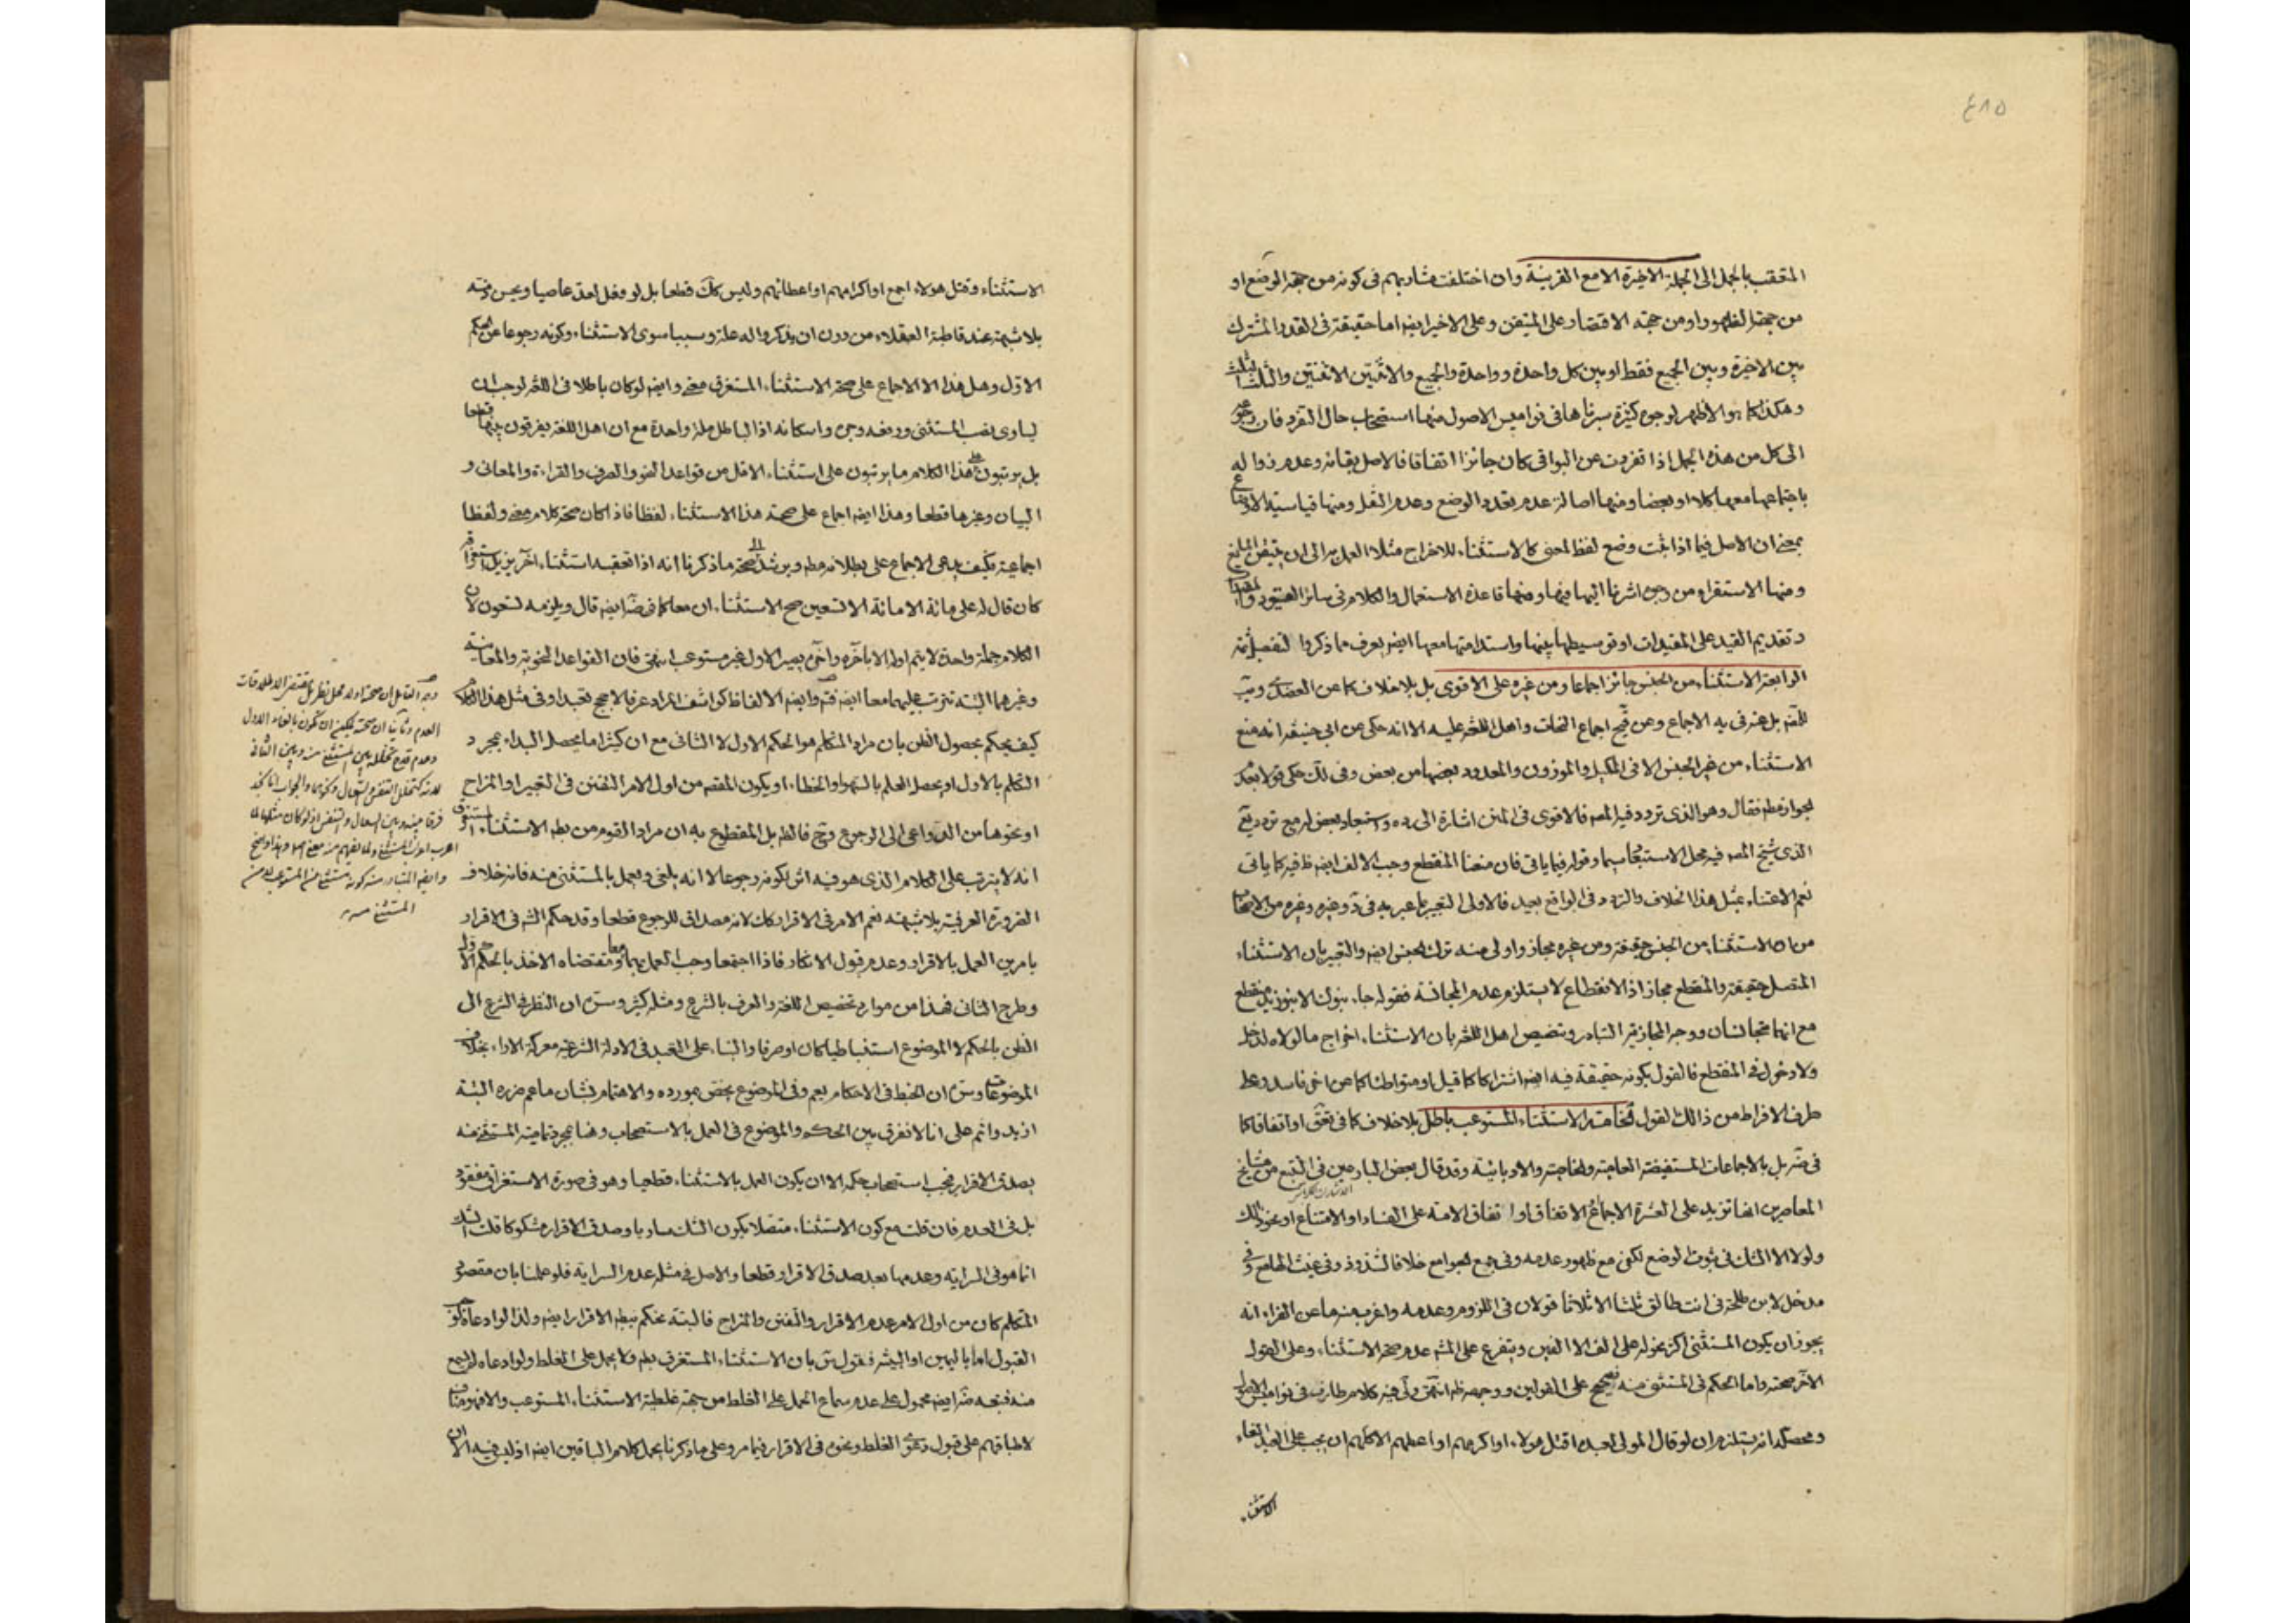 ٤١٥
المتعقب بالجمل الى الجملة الاخيرة الا مع القرينة وان اختلفت مشاربهم فى كونه من جهة الوضع او
من جهة الظهور او من جهة الاقتصار على المتيقن وعلى الاخير ايضا اما حقيقة فى القدر المشترك
بين الاخيرة وبين الجميع فقط او بين كل واحدة وواحدة والجميع والاثنتين الاثنتين والثلث الثلث
وهكذا كما هو الاظهر لوجوه كثيرة سبرناها فى نواميس الاصول منها استصحاب حال التفرد فان رجوعه
الى كل من هذه الجمل اذا تفردت عن البواقى كان جائزا اتفاقا فالاصل بقائه وعدم زواله
باجتماعها معها كلا او بعضا ومنها اصالة عدم تعدد الوضع وعدم النقل ومنها قياسية الاوضاع
بمعنى ان الاصل فيما اذا ثبت وضع لفظ لمعنى كالاستثناء للاخراج مثلا العمل به الى ان يتيقن المانع
ومنها الاستقراء من وجوه اشرنا اليها فيها ومنها قاعدة الاستعمال والكلام فى سائر القيود
وتقديم القيد على المقيدات او توسيطها بينها واستدامتها معها ايضا يعرف مما ذكروا لتفصيل ثمة
الرابعة الاستثناء من الجنس جائز اجماعا ومن غيره على الاقوى بل بلا خلاف كما عن العضدى
بل عنه فى يه الاجماع وعن اجماع النحات واهل اللغة عليه الا انه حكى عن ابى حنيفة انه منع
الاستثناء من غير الجنس الا فى المكيل والموزون والمعدود بعضها من بعض وفى لك حكى قولا بعدم
لجوازه مطم فقال وهو الذى تردد فيه المصـ فالاقوى فى المتن اشارة الى رده واستبعاد بعض له مع ترديد
الذى شيخ المصـ فيه محل الاستعجاب سيما وقوله فيما ياتى فان منعنا المنقطع وجب الالف ايضا ظ فيه كما ياتى
نعم الاعتناء بمثل هذا الخلاف والتردد فى الواقع بعيد فالاولى التعبير بما عبر به فى د وغيره وغيره من الاصحاب
من ان الاستثناء من الجنس حقيقة ومن غيره مجاز واولى منه ترك الجنس ايضا والتعبير بان الاستثناء
المتصل حقيقة والمنقطع مجاز اذ الانقطاع لا يستلزم عدم المجانسة فقوله جاء بنوك الا بنو زيد منقطع
مع انهما متجانسان ووجه المجازية التبادر وتنصيص اهل اللغة بان الاستثناء اخراج ما لولاه لدخل
ولا دخول فى المنقطع فالقول بكونه حقيقة فيه ايضا اشتراكا كما قيل او متواطئا كما عن اخر فاسد وعلى
طرف الافراط من ذالك القول الخامسة الاستثناء المستوعب باطل بلا خلاف كما فى او اتفاقا كما
فى ضه بل بالاجماعات المستفيضة العامية والخاصية والادبائية وقد قال بعض البارعين فى التتبع من مشايخ
المعاصرين انها تزيد على العشرة الاجماع الاتفاق او اتفاق الامة على الفساد او الامتناع او نحو ذلك
ولولاه الا الشك فى ثبوت الوضع لكفى مع ظهور عدمه وفى جمع الجوامع خلافا لشذوذ وفى غيث الهامع وفى
مدخل لابن طلحة فى انت طالق ثلثا الا ثلاثا قولان فى اللزوم وعدمه واغرب منه ما عن الفراء انه
يجوز ان يكون المستثنى اكثر نحو له على الف الا الفين ويتفرع على المشه عدم صحة الاستثناء وعلى القول
الآخر صحته واما الحكم فى المستثنى منه فصحيح على القولين ووجهه ظ انتهى ولى فيه كلام طارف فى نواميس الاصول
ومحصله انه يستلزم ان لو قال المولى لعبده اقتل هؤلاء او اكرمهم او اعطهم الا كلهم ان يجب على العبد الغاء
الاستثناء
الاستثناء وقتل هولاء اجمع او اكرامهم او اعطائهم وليس كك قطعا بل لو فعل لعد عاصيا وحسن ذمه
بلا شبهة عند قاطبة العقلاء من دون ان يذكروا له علة وسببا سوى الاستثناء وكونه رجوعا عن الحكم
الاول وهل هذا الا الاجماع على صحة الاستثناء المستغرق معنى وايضا لو كان باطلا فى اللغة لوجب ان
يساوى نصب المستثنى ورفعه وجره واسكانه اذ الباطل ملة واحدة مع ان اهل اللغة يفرقون بينها قطعا
بل يرتبون على هذا الكلام ما يرتبون على استثناء الاقل من قواعد النحو والصرف والقراءة والمعانى و
البيان وغيرها قطعا وهذا ايضا اجماع على صحة هذا الاستثناء لفظا فاذا كان صحة كلام معنى ولفظا
اجماعية فكيف يدعى الاجماع على بطلانه مطم ويرشد الى صحة ما ذكرنا انه اذا تعقبه استثناء آخر يزيل استغراقه
كان قال له على مائة الا مائة الا تسعين صح الاستثناء ان معا كما فى ضه ايضا قال ويلزمه تسعون لان
الكلام جملة واحدة لا يتم اوله الا باخره واخره يصير الاول غير مستوعب انتهى فان القواعد النحوية والمعانية
وغيرهما البتة تترتب عليهما معا ايضا وايضا الالفاظ كواشف المراد عرفا لا حجج تعبدا وفى مثل هذا الكلام
كيف يحكم بحصول الظن بان مراد المتكلم هو الحكم الاول لا الثانى مع ان كثيرا ما يحصل البداء بمجرد
التكلم بالاول او يحصل العلم بالسهو او الخطاء او يكون المقصد من اول الامر التفنن فى التعبير او المزاح
او نحوها من الدواعى الى الرجوع وح فالظ بل المقطوع به ان مراد القوم من بطـ الاستثناء المستغرق
انه لا يترتب على الكلام الذى هو فيه اثر بكونه رجوعا لا انه يلغى ويعمل بالمستثنى منه فانه خلاف
الضرورة العرفية بلا شبهة نعم الامر فى الاقرار كك لانه مصداق للرجوع قطعا وقد حكم الش فى الاقرار
بامرين العمل بالاقرار وعدم قبول الانكار فاذا اجتمعا وجب العمل بهما معا ومقتضاه الاخذ بالحكم الاول
وطرح الثانى فهذا من موارد تخصيص اللغة والعرف بالشرع ومثله كثير وسره ان النظر فى الشرع الى
الظن بالحكم لا الموضوع استنباطيا كان او صرفا والبناء على التعبد فى الادلة الشرعية معركة الاراء بخلاف
الموضوعات وسره ان الخبط فى الاحكام يعم وفى الموضوع يختص بمورده والاهتمام بشان ما عم ضرره البتة
ازيد وانهم على انا لا نفرق بين الحكم والموضوع فى العمل بالاستصحاب وهنا بمجرد تمامية المستثنى منه
يصدق الاقرار فيجب استصحاب حكمه الا ان يكون العمل بالاستثناء قطعيا وهو فى صورة الاستغراق مفقود
بل فى العدم فان قلت مع كون الاستثناء متصلا يكون الشك ساريا وصدق الاقرار مشكوكا قلت الشك
انما هو فى السراية وعدمها بعد صدق الاقرار قطعا والاصل فى مثله عدم السراية فلو علمنا بان مقصود
المتكلم كان من اول الامر عدم الاقرار والتفنن والمزاح فالبتة نحكم ببطـ الاقرار ايضا ولذا لو ادعاه
القبول اما باليمين او البينة فقول بان الاستثناء المستغرق بط ولا يحمل على الغلط ولو ادعاه لم يسمع
منه فتبعه ضه ايضا محمول على عدم سماع الحمل على الغلط من جهة غلطية الاستثناء المستوعب والا فهو مناف
لاطباقهم على قبول دعوى الغلط ونحوه فى الاقرار فيما مر وعلى ما ذكرنا يحمل كلام الباقين ايضا اذ ليس فيه الا ان
العدم وثانيا ان صحته يمكن ان تكون بالغاء الاول
وعدم قدح تخلله بين المستثنى منه وبين الثانى
لانه كتخلل التنفس والسعال ونحوهما والجواب انا نجد
فرقا بينه وبين السعال والتنفس اذ لو كان مثلهما لما
المستثنى منه